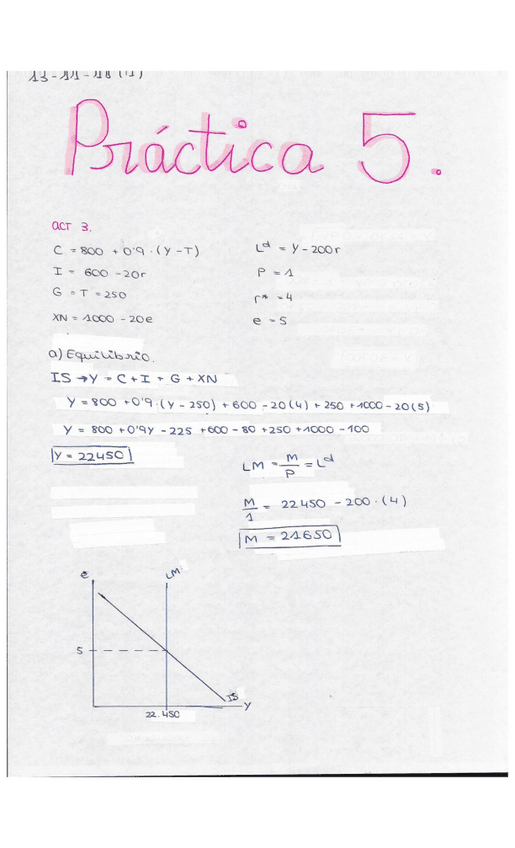 13-11-18 (1)
Práctica 5.
ACT 3.
C = 800 + 0'9 · (Y - T)
I = 600 - 20r
G = T = 250
XN = 1000 - 20e
L^d = Y - 200r
P = 1
r* = 4
e = 5
a) Equilibrio.
IS → Y = C + I + G + XN
Y = 800 + 0'9 · (Y - 250) + 600 - 20(4) + 250 + 1000 - 20(5)
Y = 800 + 0'9Y - 225 + 600 - 80 + 250 + 1000 - 100
Y = 22450
LM = M/P = L^d
M/1 = 22450 - 200 · (4)
M = 21650
e
LM
5
IS
22.450
Y